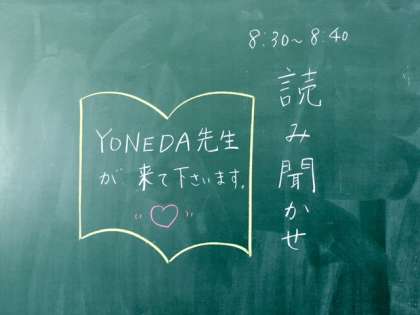 8:30〜8:40
読み聞かせ
YONEDA先生
が 来て下さいます。